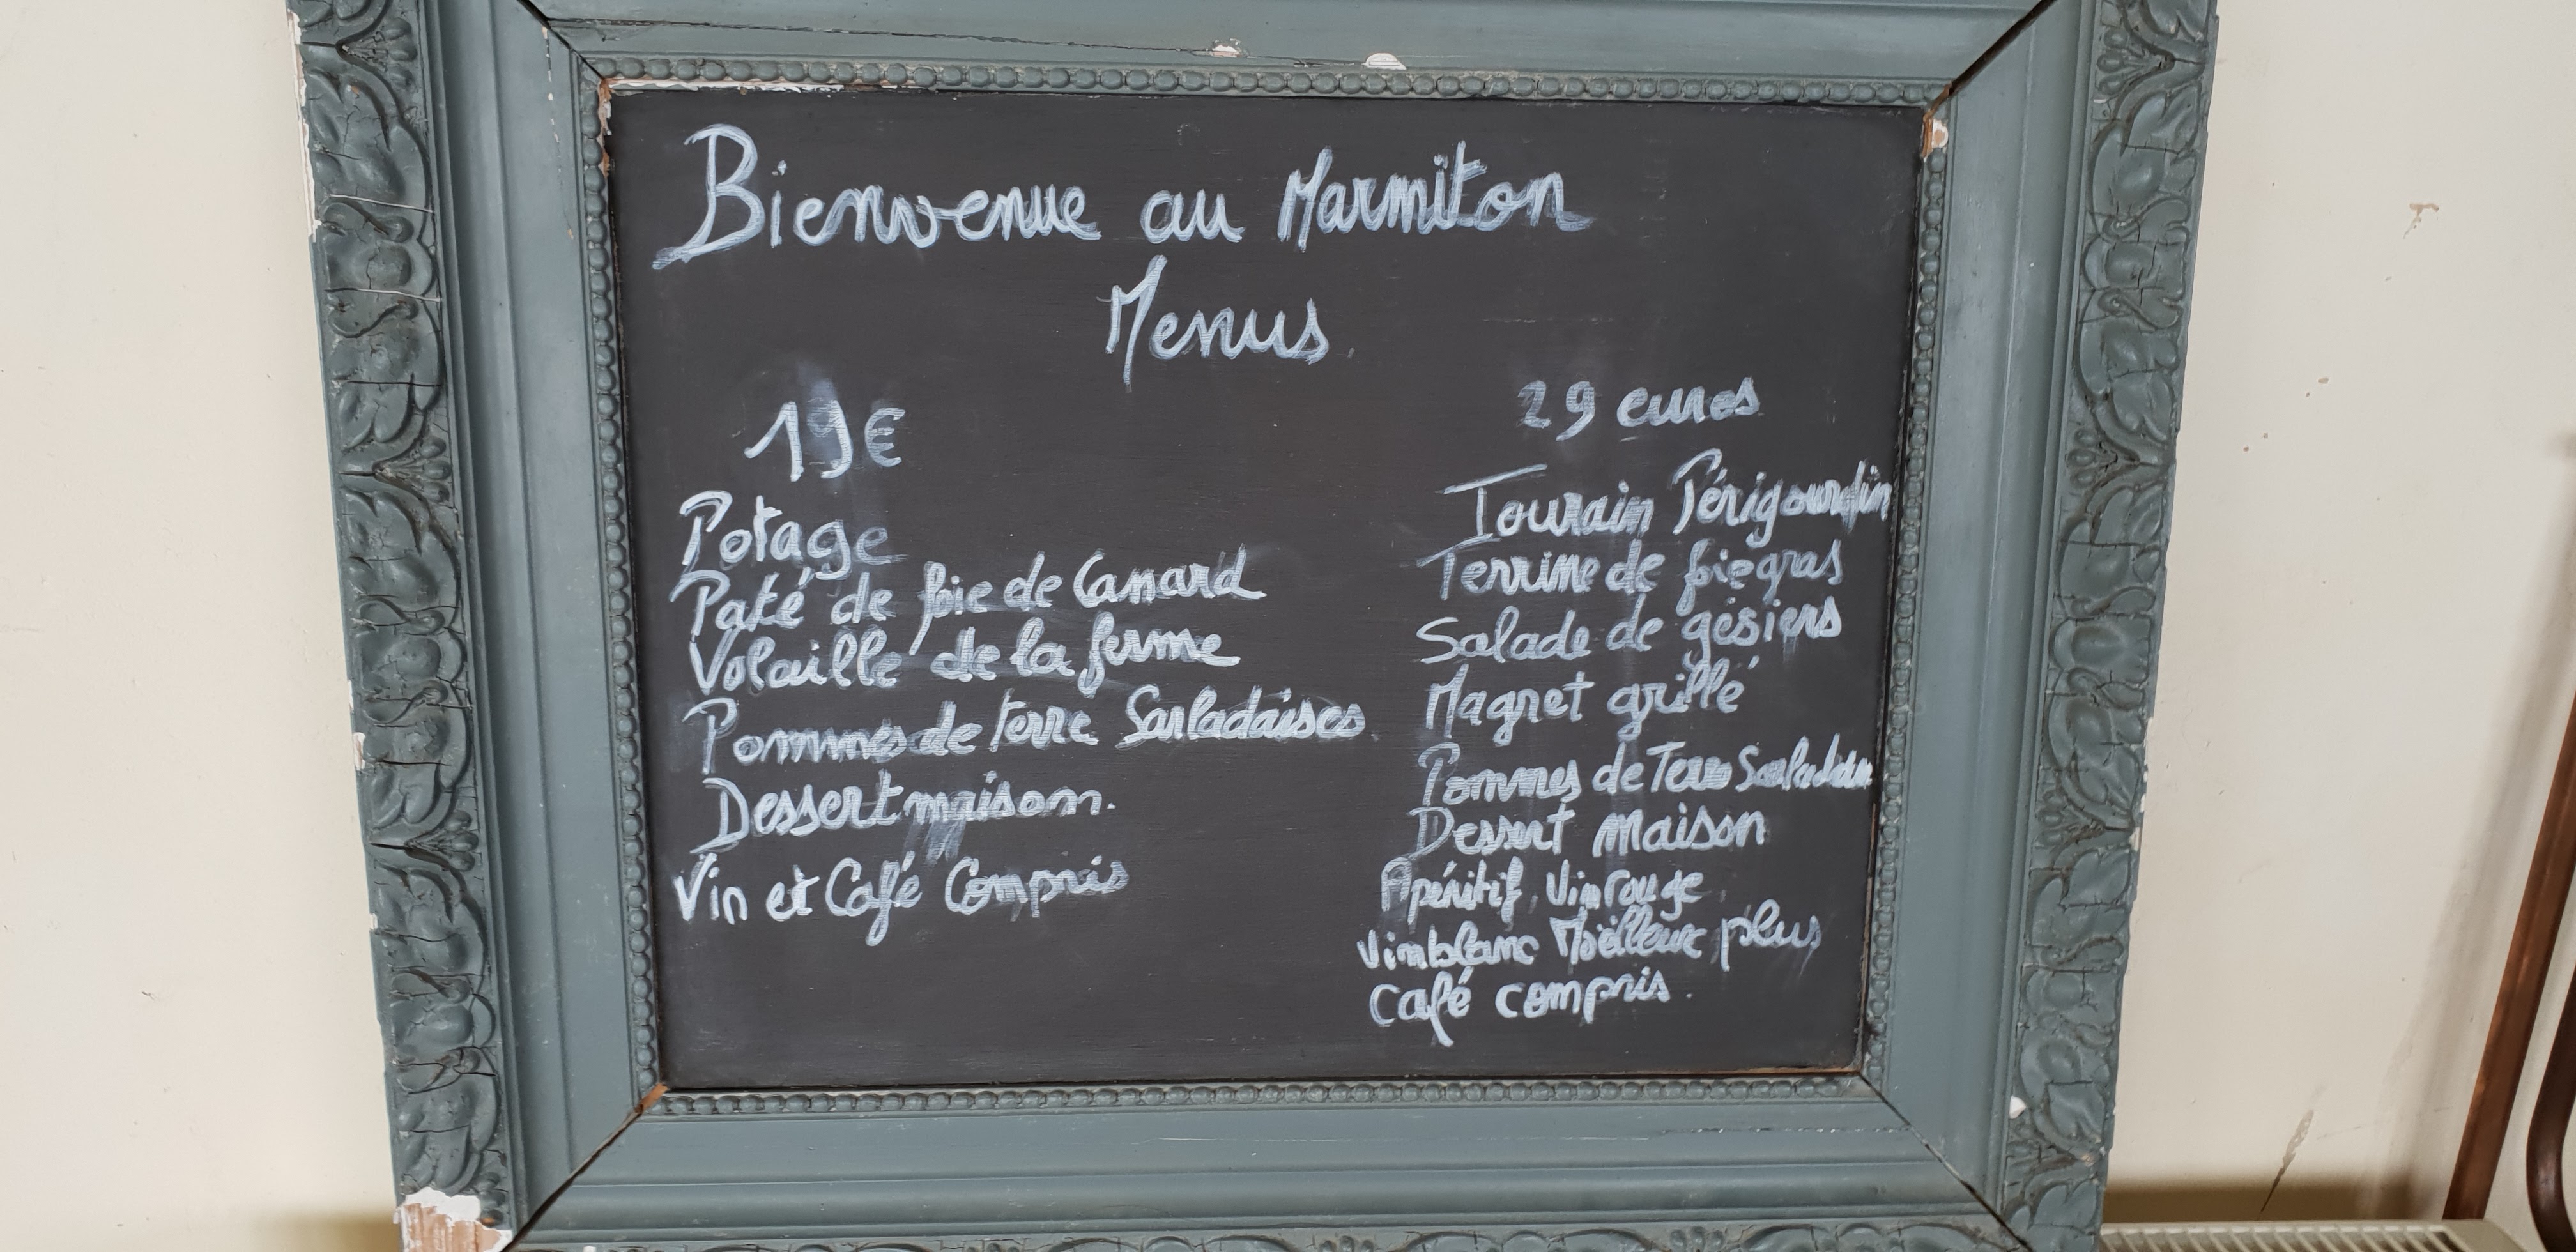 Bienvenue au Marmiton
Menus
19€
Potage
Paté de foie de Canard
Volaille de la ferme
Pommes de terre Sarladaises
Dessert maison.
Vin et Café Compris
29 euros
Tourain Périgourdin
Terrine de foie gras
Salade de gésiers
Magret grillé
Pommes de Terre
Dessert maison
Apéritif, Vin rouge
Vin blanc Moëlleux plus
Café compris.